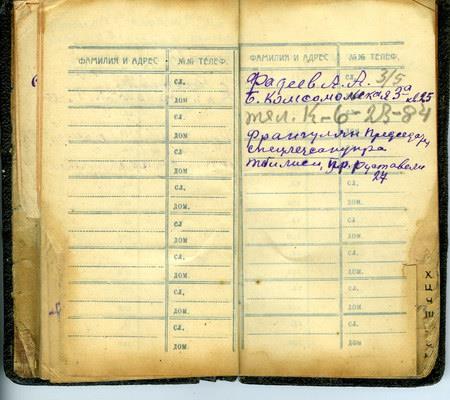 ФАМИЛИЯ И АДРЕС №№ ТЕЛЕФ.
СЛ.
ДОМ
СЛ.
ДОМ
СЛ.
ДОМ
СЛ.
ДОМ.
СЛ
ДОМ
СЛ.
ДОМ
СЛ.
ДОМ.
СЛ.
ДОМ.
ФАМИЛИЯ И АДРЕС №№ ТЕЛЕФ.
Фадеев А. А. 3/5
б. Комсомольская 3а кв 25
тел. К-6-23-84
Франгулян Председ
спецлечсанупра
Тбилиси, пр. Руставели
27
СЛ.
ДОМ.
СЛ.
ДОМ.
СЛ.
ДОМ.
СЛ.
ДОМ.
СЛ.
ДОМ.
Х Ц Ч Ш